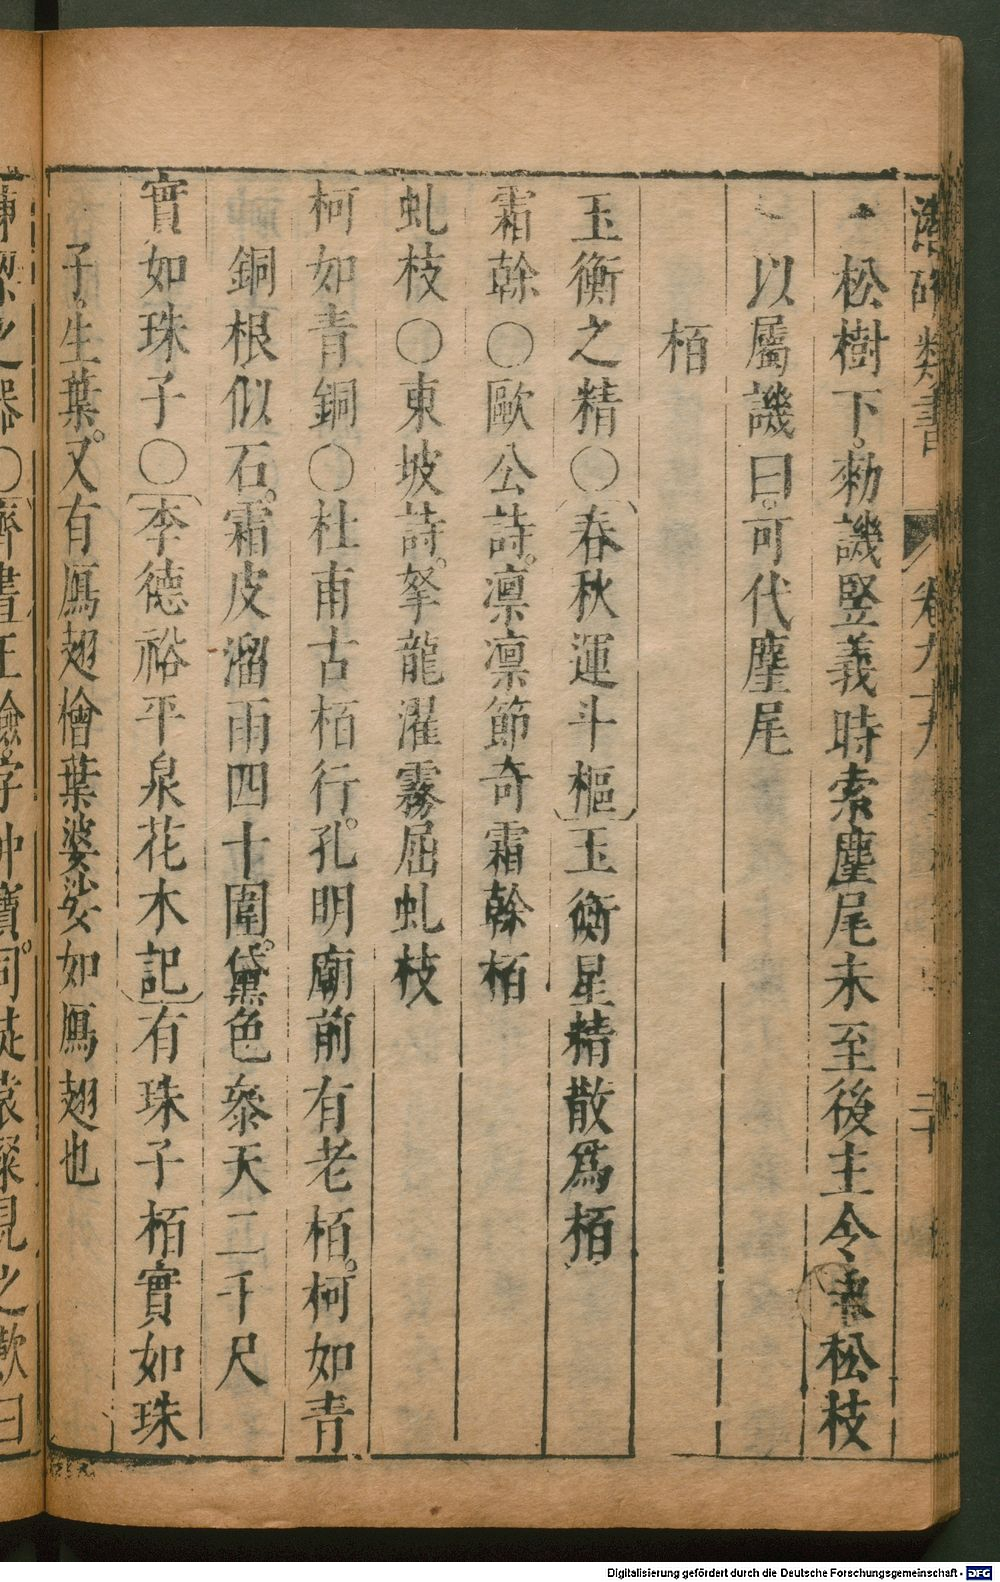 潛確類書 卷九十九 二十
松樹下。勑譏竪義時索麈尾未至後主令取松枝
以屬譏曰。可代麈尾
栢
玉衡之精〇(春秋運斗樞)玉衡星精散爲栢
霜榦〇歐公詩。凛凛節奇霜榦栢
虬枝〇東坡詩。拏龍濯霧屈虬枝
柯如青銅〇杜甫古栢行。孔明廟前有老栢。柯如青
銅根似石。霜皮溜雨四十圍。黛色叅天二千尺
實如珠子〇(李德裕平泉花木記)有珠子栢實如珠
子。生葉。又有鴈翅檜葉婆娑如鴈翅也
之器〇齊書王儉。字仲寶。同徒袁粲見之歎曰
Digitalisierung gefördert durch die Deutsche Forschungsgemeinschaft - DFG